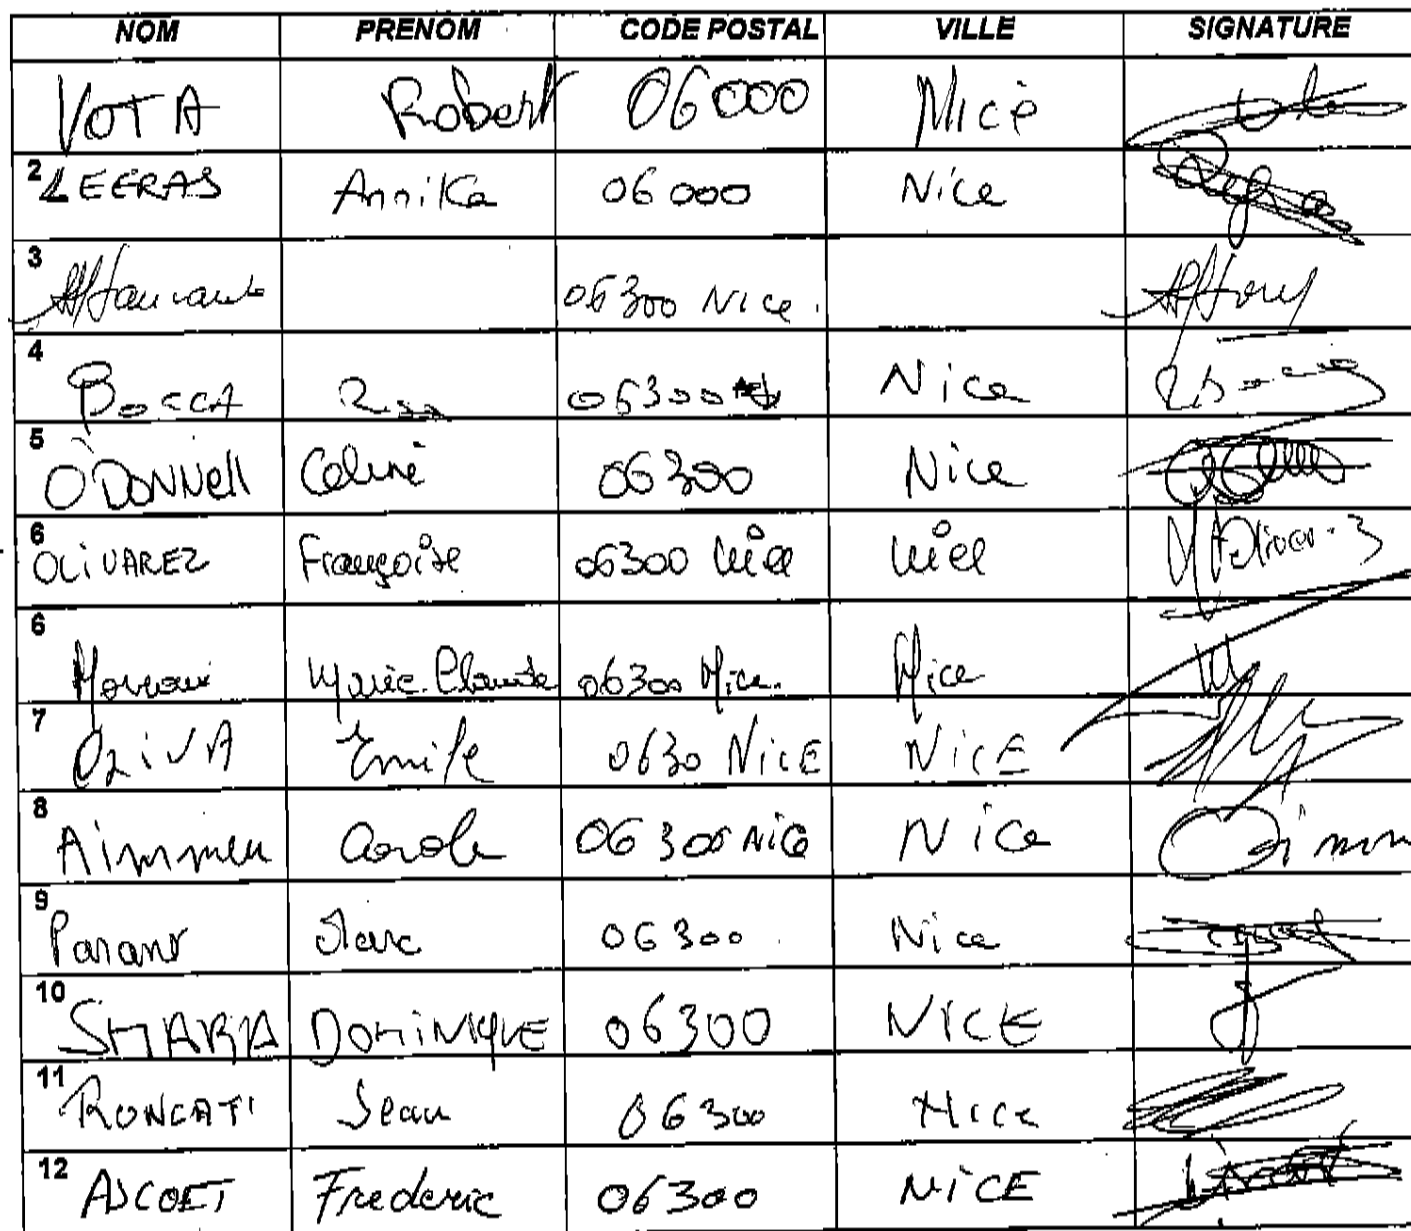 NOM PRENOM CODE POSTAL VILLE SIGNATURE
VOTA Robert 06000 Nice
2 LEERAS Annika 06000 Nice
3 06300 Nice.
4 BOCCA 06300 Nice
5 O'DONNell Celine 06300 Nice
6 OLIVAREZ Françoise 06300 Nice Nice
6 Moreau Marie-Claude 06300 Nice. Nice
7 OLIVA Emile 0630 NicE NicE
8 Aimmeu Carole 06300 Nice Nice
9 Parant Marc 06300 Nice
10 SMARIA DOMINIQUE 06300 NICE
11 RONCATI Jean 06300 Nice
12 ASCOET Frederic 06300 NICE